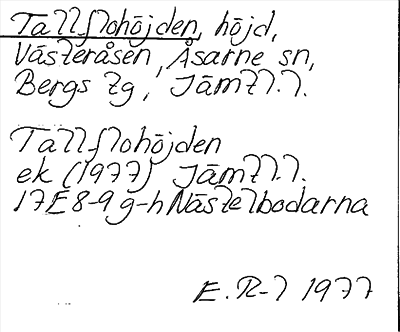 Tallflohöjden, höjd,
Västeråsen, Åsarne sn,
Bergs tg, Jämtl.l.
Tallflohöjden
ek (1977) Jämtl.l.
17E8-9g-h Nästelbodarna
E.R-l 1977